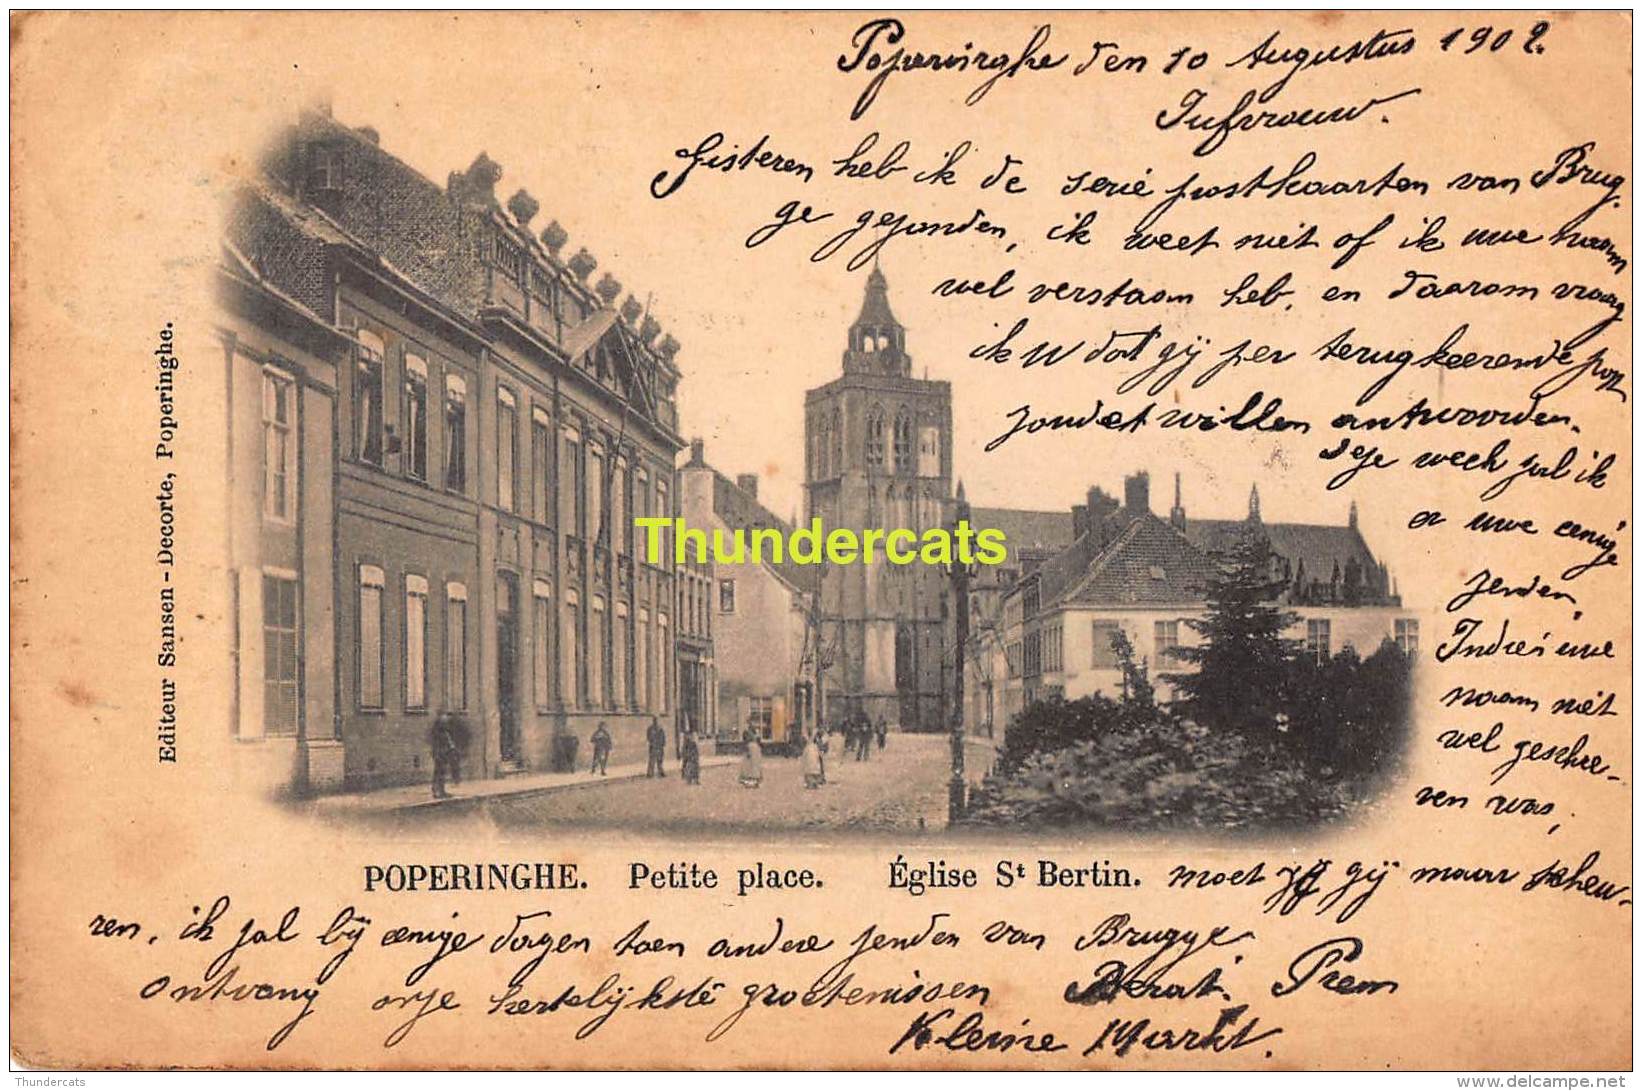 Poperinghe den 10 Augustus 1902.
Jufvrouw.
Gisteren heb ik de serie postkaarten van Brug
ge gezonden, ik weet niet of ik uwe naam
wel verstaan heb, en daarom vraag
ik U dat gij per terugkeerende post
zoudet willen antwoorden.
deze week zal ik
er uwe eenige
zenden,
Indien uwe
naam niet
wel geschre-
ven was,
moet gij maar scheu-
ren, ik zal bij eenige dagen toen andere zenden van Brugge
Ontvang onze hertelijkste groetenissen Prem
Kleine Markt.
Editeur Sansen - Decorte, Poperinghe.
POPERINGHE. Petite place. Église St Bertin.
Thundercats
Thundercats
www.delcampe.net